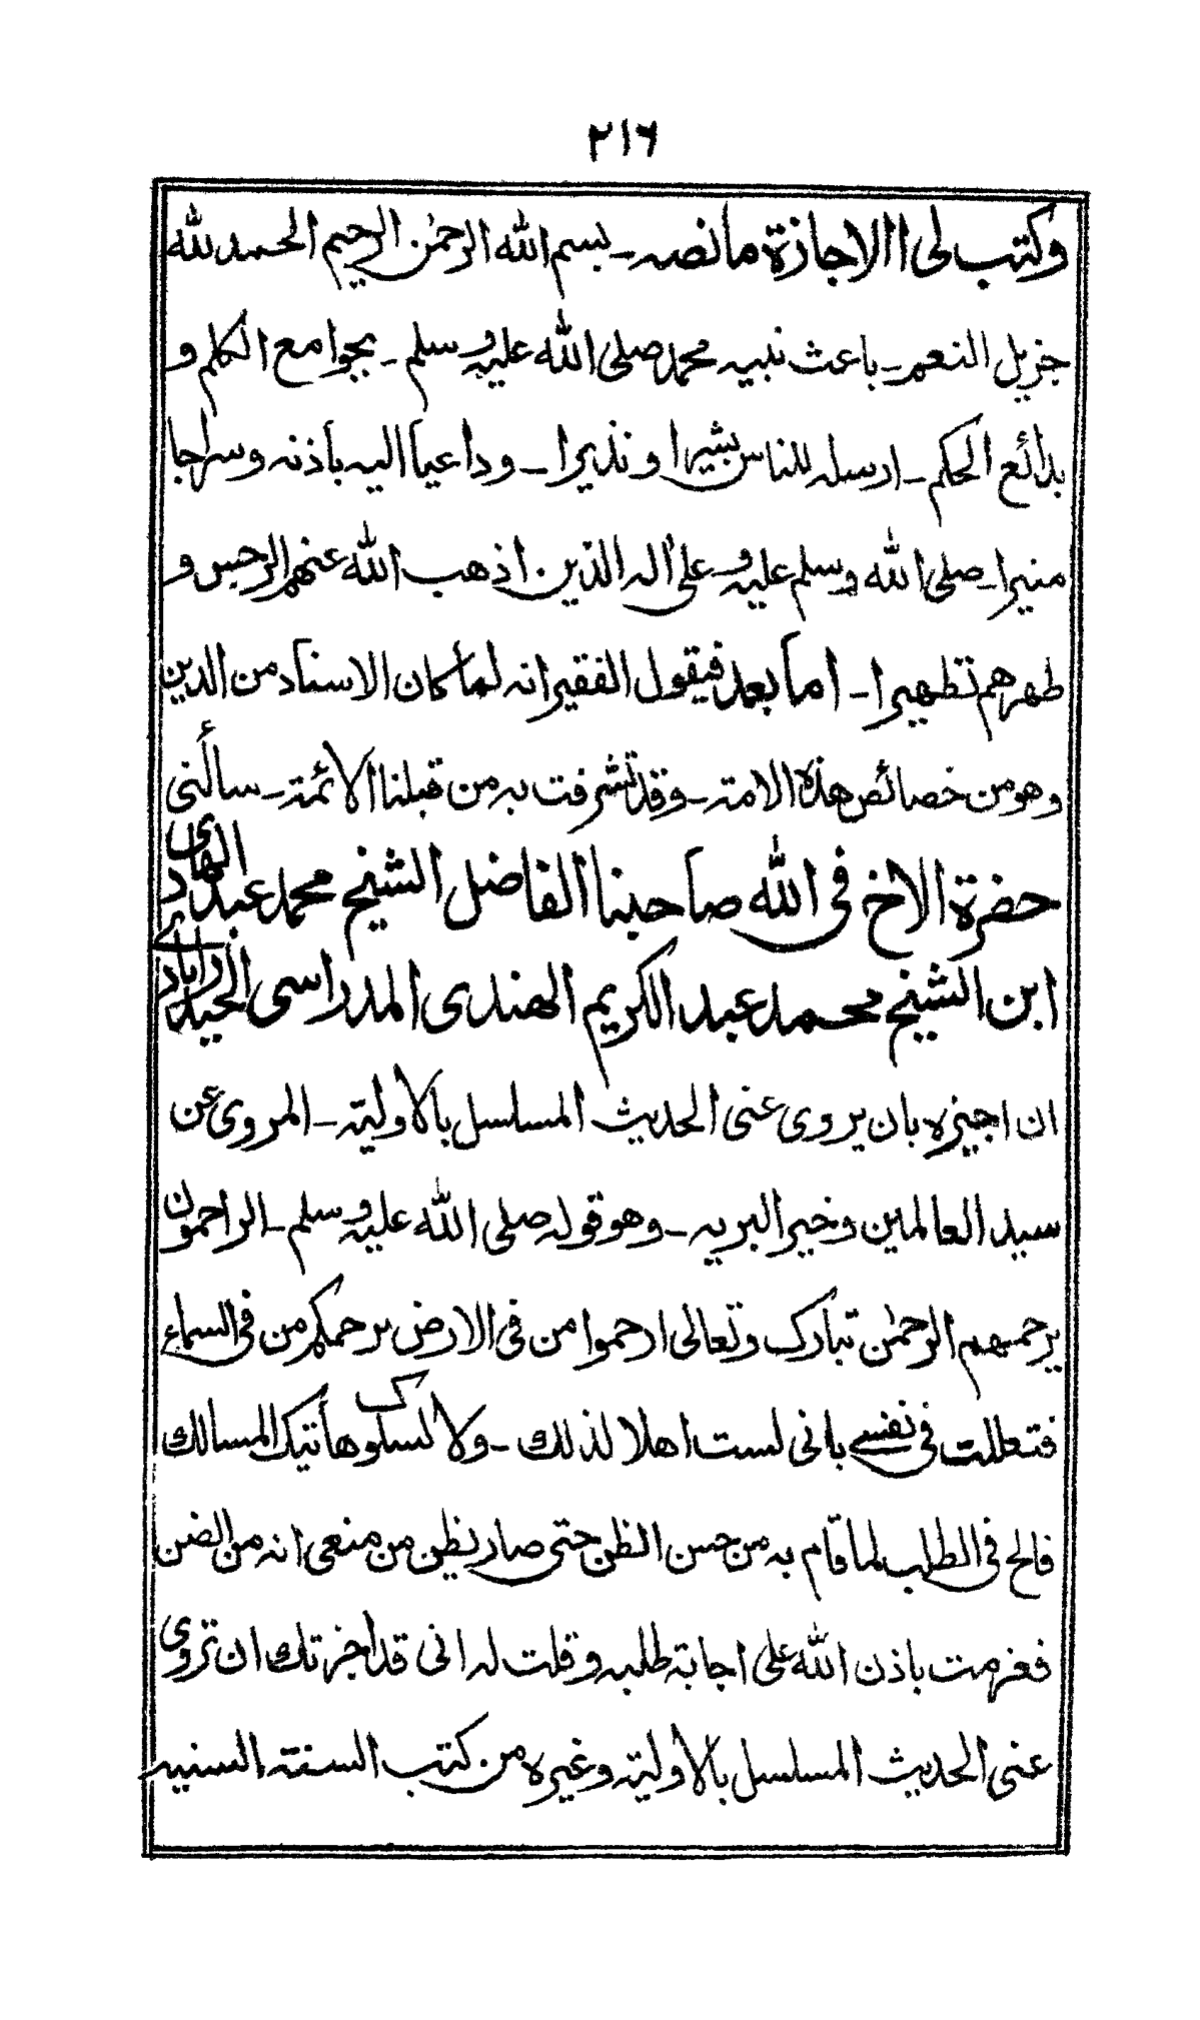 ٢١٦
وكتب لى الاجازة مانصه ـ بسم الله الرحمن الرحيم الحمد لله
جزيل النعم ـ باعث نبيه محمد صلى الله عليه وسلم ـ بجوامع الكلم و
بدائع الحكم ـ ارسله للناس بشيرا ونذيرا ـ وداعيا اليه باذنه وسراجا
منيرا ـ صلى الله وسلم عليه وعلى اله الذين اذهب الله عنهم الرجس و
طهرهم تطهيرا ـ اما بعد فيقول الفقير انه لما كان الاسناد من الدين
وهو من خصائص هذه الامة ـ وقد تشرفت به من قبلنا الائمة ـ سألنى
حضرة الاخ فى الله صاحبنا الفاضل الشيخ محمد عبد الهادى
ابن الشيخ محمد عبد الكريم الهندى المدراسى الحيدراباد
ان اجيزه بان يروى عنى الحديث المسلسل بالاولية ـ المروى عن
سيد العالمين وخير البريه ـ وهو قوله صلى الله عليه وسلم ـ الراحمون
يرحمهم الرحمن تبارك وتعالى ارحموا من فى الارض يرحمكم من فى السماء
فتعللت فى نفسى بانى لست اهلا لذلك ـ ولا لسلوك هاتيك المسالك
فالح فى الطلب لما قام به من حسن الظن حتى صار يظن من منعى انه من الضن
فعزمت باذن الله على اجابة طلبه وقلت له انى قد اجزتك ان تروى
عنى الحديث المسلسل بالاولية وغيره من كتب السنة السنيه